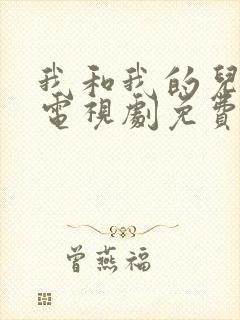 我和我的兒
電視劇免費
曾燕福